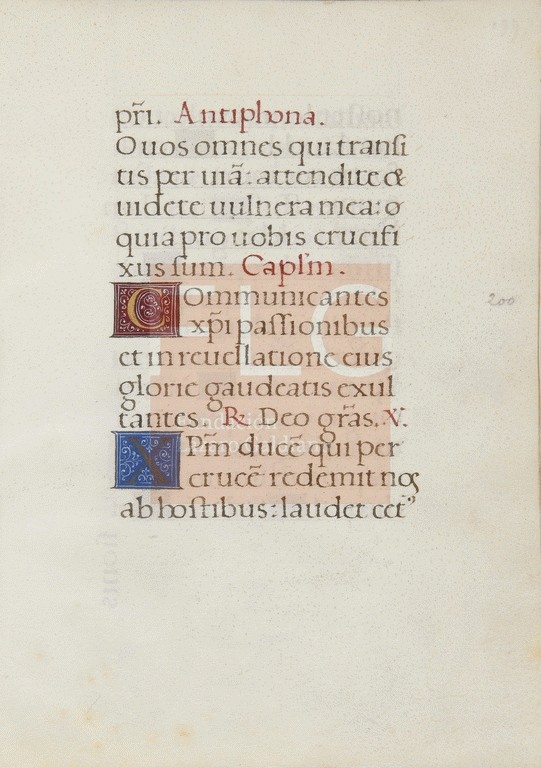 199
pr̃i. Antiphona.
O uos omnes qui transi
tis per uiã: attendite &
uidete uulnera mea: o
quia pro uobis crucifi
xus sum. Capl'm.
Communicantes
xp̃i passionibus
200
et in reuellatione eius
glorie gaudeatis exul
tantes. R. Deo grãs. V.
XPr̃m ducẽ qui per
crucẽ redemit nos
ab hostibus: laudet cet⁹
FLG